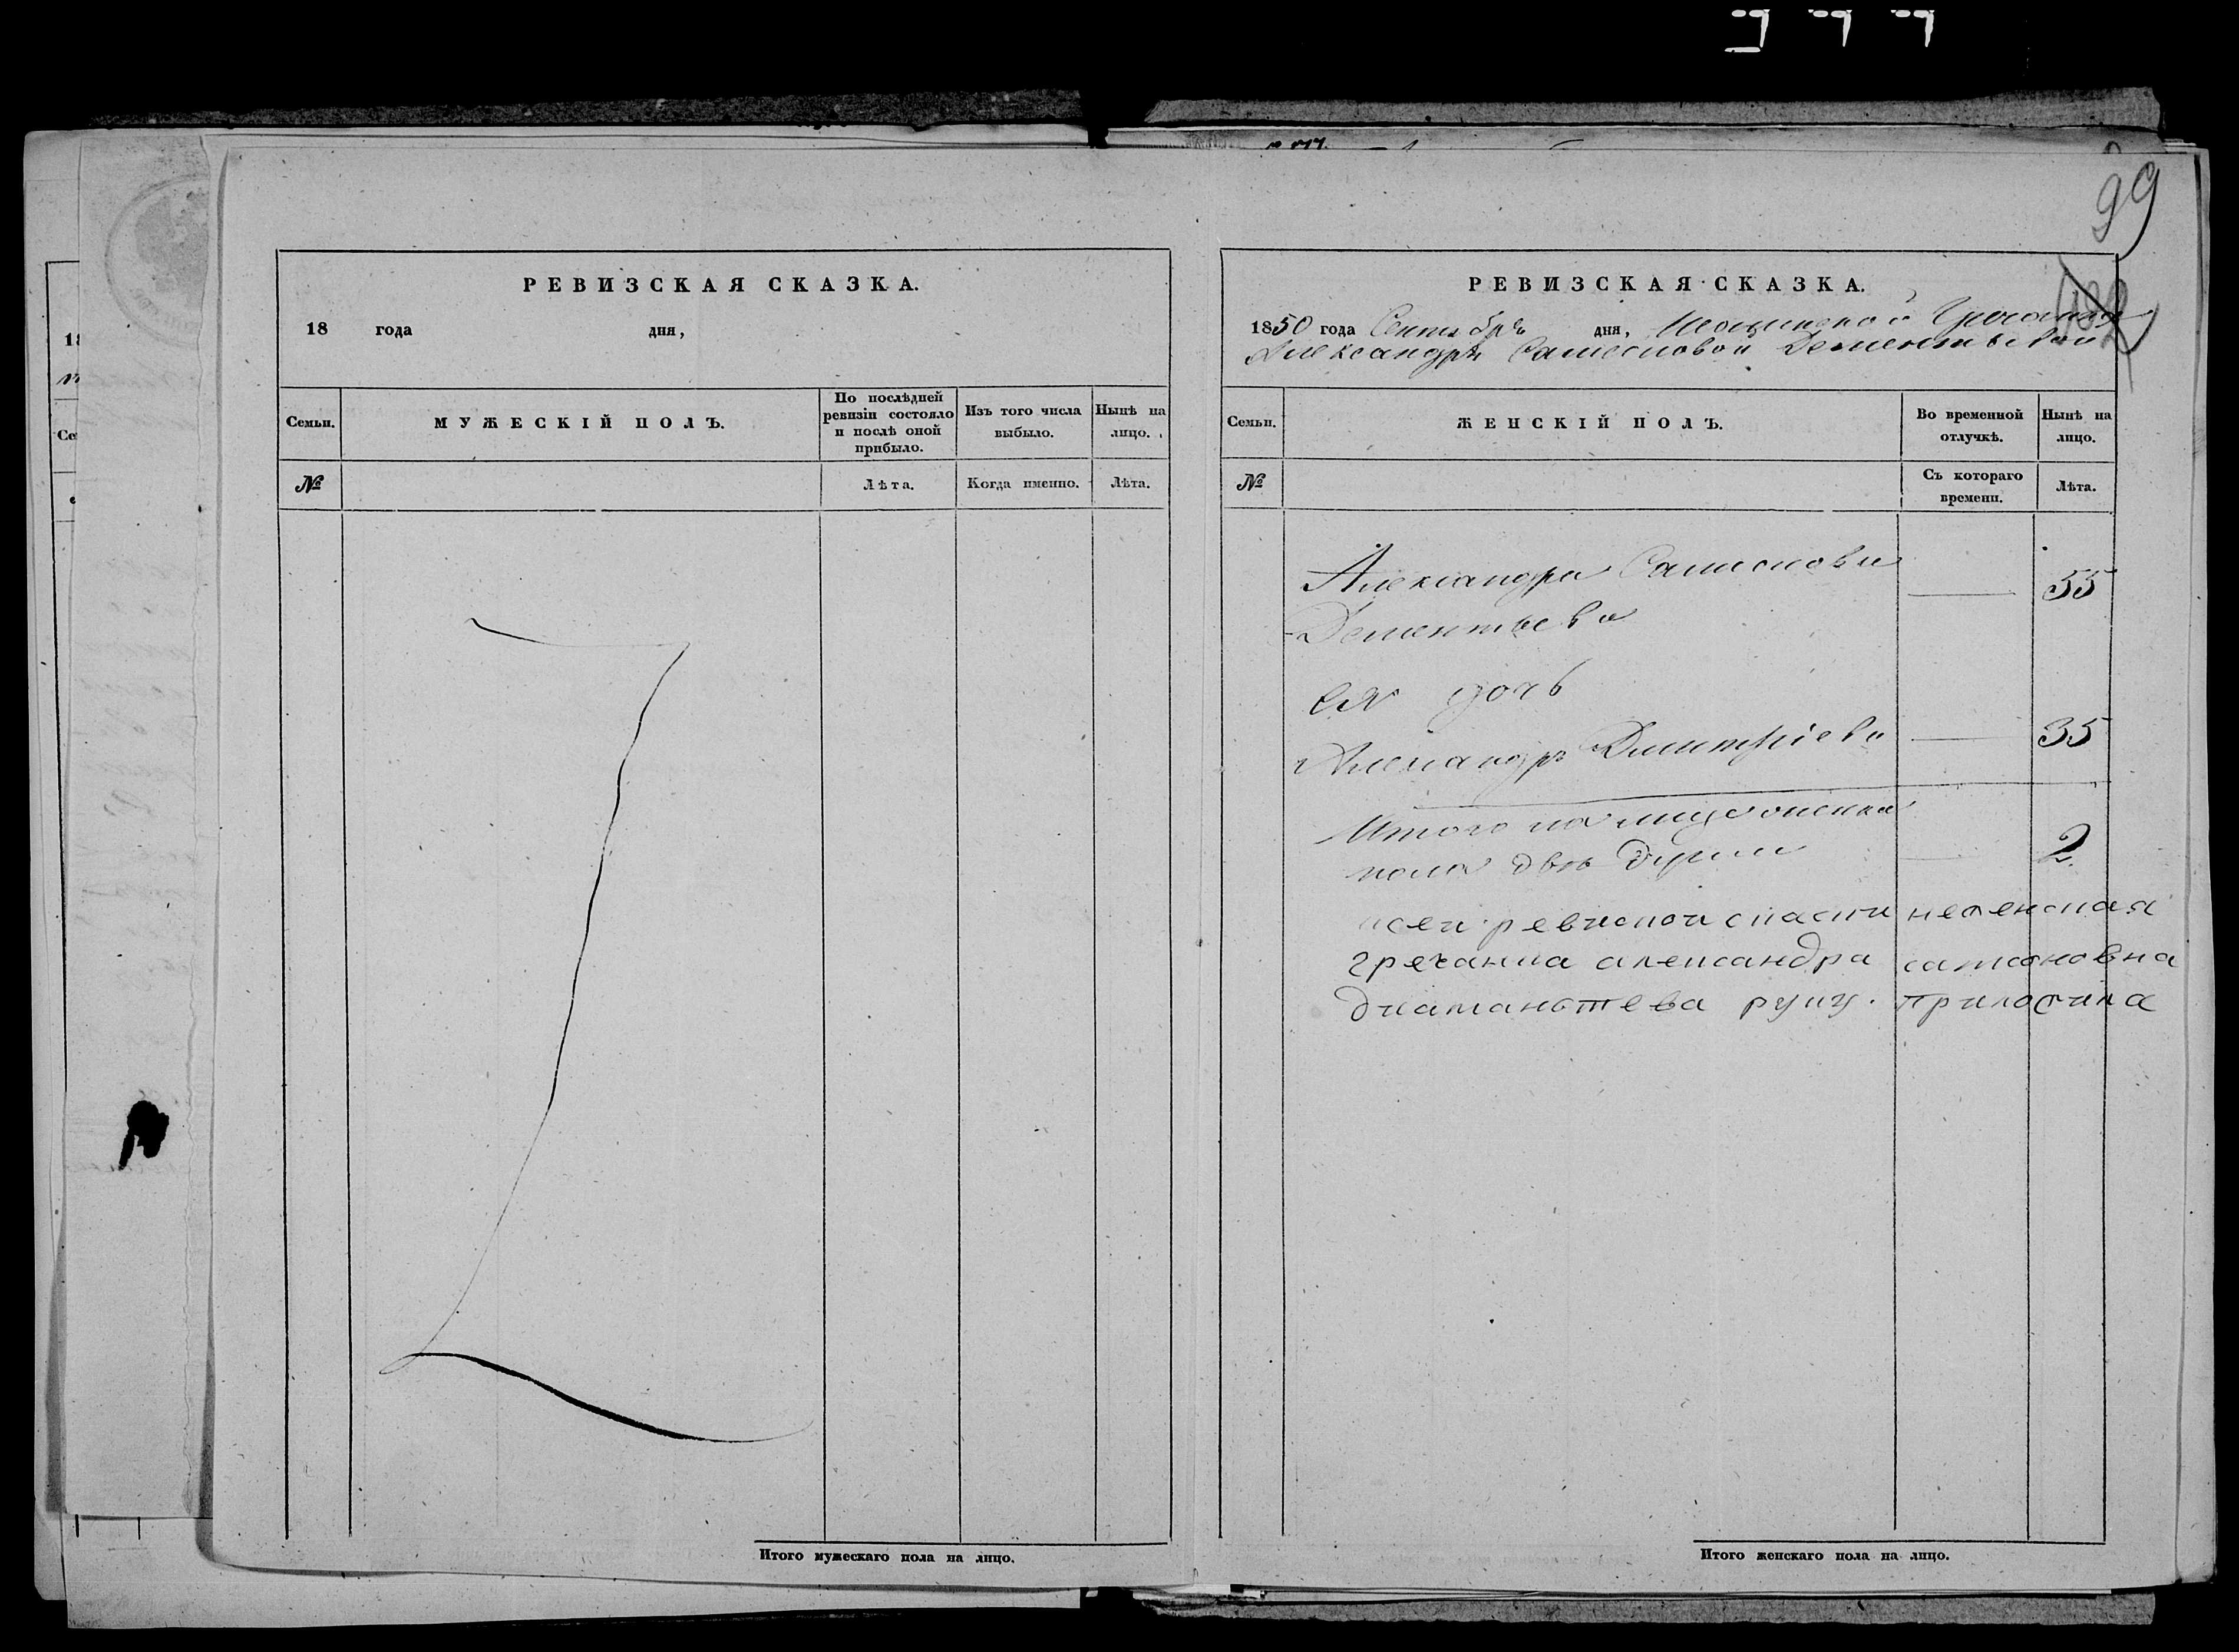 99
РЕВИЗСКАЯ СКАЗКА.
18 года дня,
Семьи.
МУЖЕСКІЙ ПОЛЪ.
По послѣдней ревизіи состояло и послѣ оной прибыло.
Изъ того числа выбыло.
Нынѣ на лицо.
№
Лѣта.
Когда именно.
Лѣта.
Итого мужескаго пола на лицо.
РЕВИЗСКАЯ СКАЗКА.
1850 года Сентябрь дня,
Александры Самсоновой Дементьевой
Семьи.
ЖЕНСКІЙ ПОЛЪ.
Во временной отлучкѣ.
Нынѣ на лицо.
№
Съ котораго времени.
Лѣта.
Александра Самсонова 55
Дементьева
ея дочь
Дмитріева 35
Итого на лицо женска
пола двѣ души 2.
гречанка александра самсоновна
руку приложила
Итого женскаго пола на лицо.